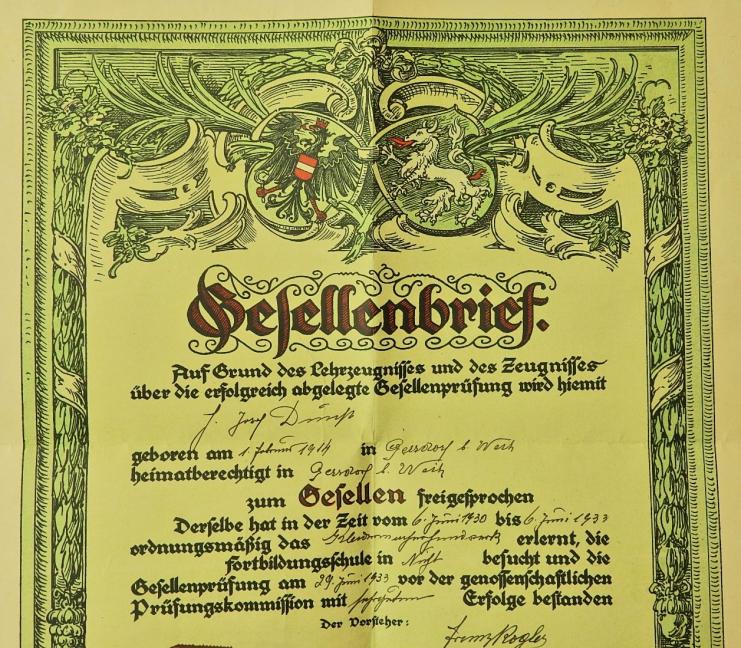 Gesellenbrief.
Auf Grund des Lehrzeugnisses und des Zeugnisses
über die erfolgreich abgelegte Gesellenprüfung wird hiemit
Josef
geboren am 1. Februar 1914 in Gersdorf b. Weitz
heimatberechtigt in Gersdorf b. Weitz
zum Gesellen freigesprochen
Derselbe hat in der Zeit vom 6. Juni 1930 bis 6. Juni 1933
ordnungsmäßig das erlernt, die
Fortbildungsschule in besucht und die
Gesellenprüfung am 29. Juni 1933 vor der genossenschaftlichen
Prüfungskommission mit Erfolge bestanden
Der Vorsteher:
Franz Kogler